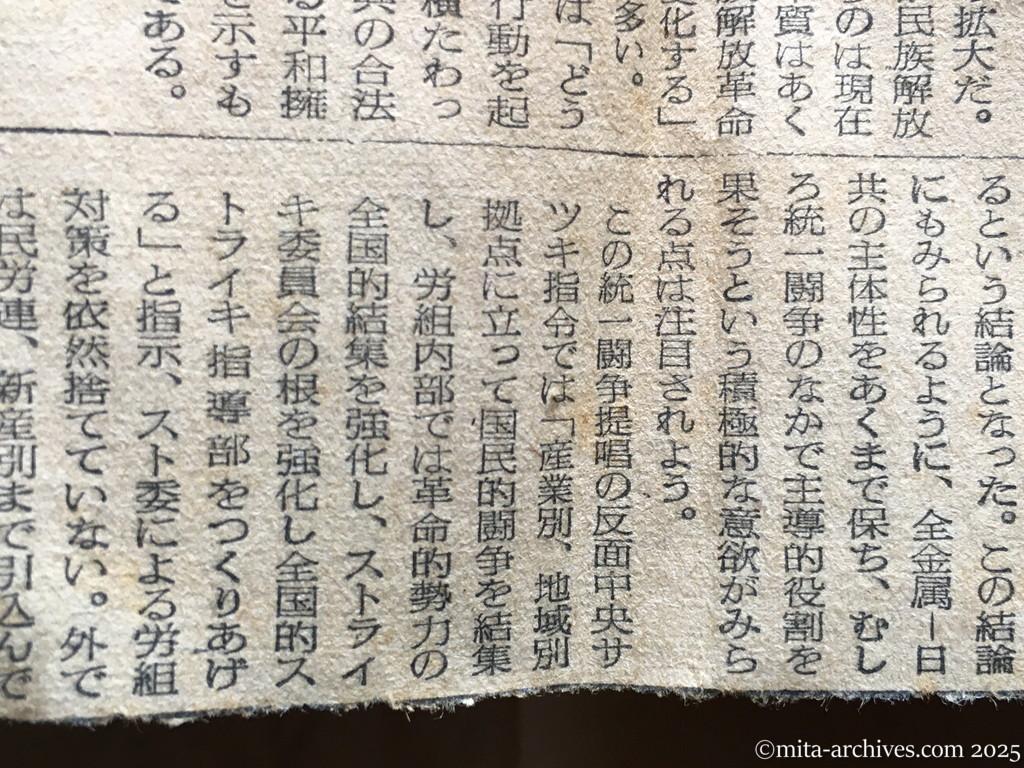 拡大だ。
民族解放
のは現在
質はあく
解放革命
化する」
多い。
は「どう
行動を起
横たわっ
の合法
る平和擁
を示すも
ある。
るという結論となった。この結論
にもみられるように、全金属―日
共の主体性をあくまで保ち、むし
ろ統一闘争のなかで主導的役割を
果そうという積極的な意欲がみら
れる点は注目されよう。
この統一闘争提唱の反面中央サ
ツキ指令では「産業別、地域別
拠点に立って国民的闘争を結集
し、労組内部では革命的勢力の
全国的結集を強化し、ストライ
キ委員会の根を強化し全国的ス
トライキ指導部をつくりあげ
る」と指示、スト委による労組
対策を依然捨てていない。外で
は民労連、新産別まで引込んで
©mita-archives.com 2025